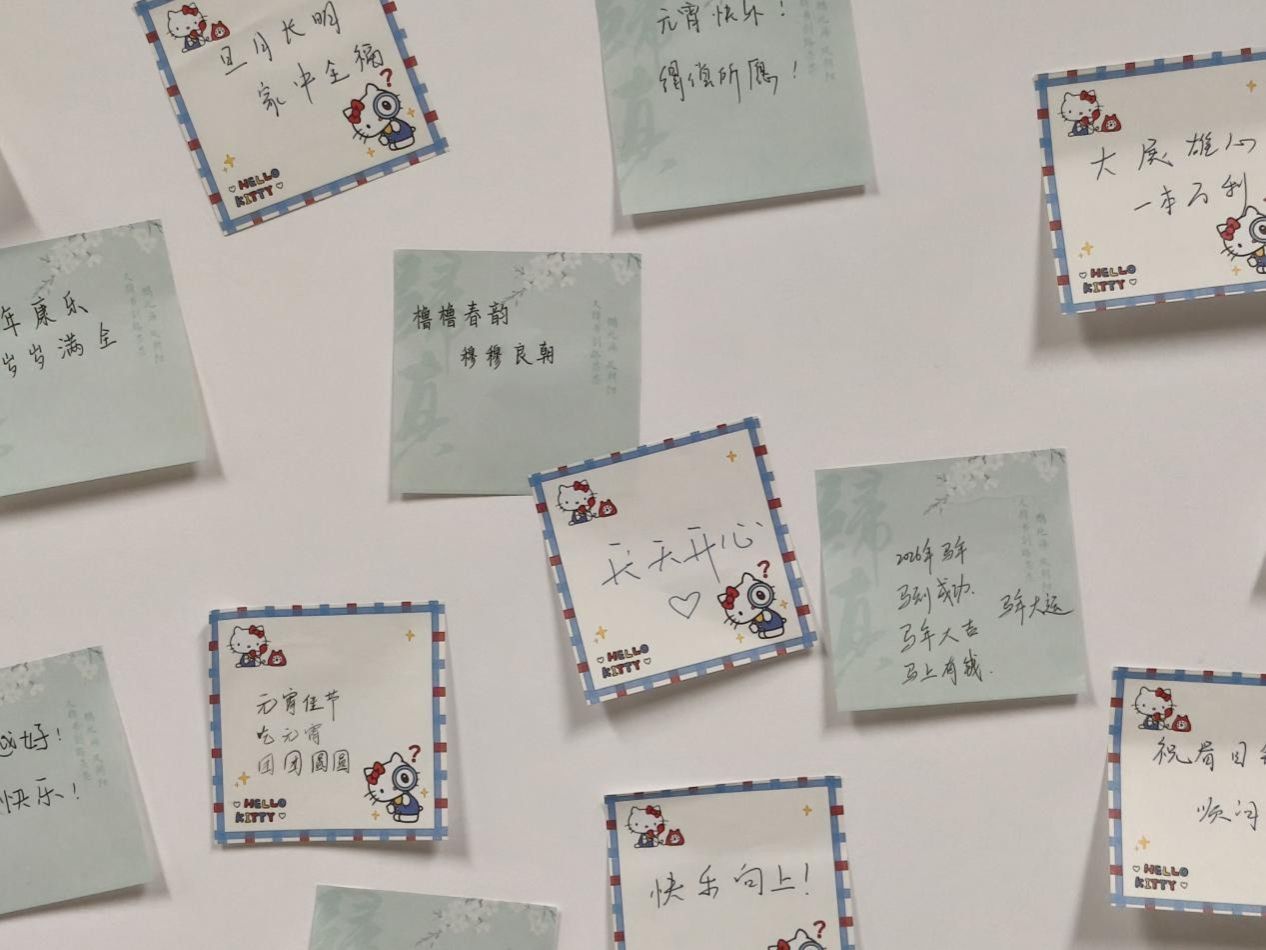 旦月长明
家中全福
HELLO
KITTY
元宵快乐!
得偿所愿!
大展雄心
一本万利
HELLO
KITTY
年康乐
岁岁满全
橹橹春韵
穆穆良朝
天天开心
HELLO
KITTY
2026年马年
马到成功.
马年大吉
马上有钱.
马年大运
好!
快乐!
元宵佳节
吃元宵
团团圆圆
HELLO
KITTY
快乐向上!
祝眉目
顺
HELLO
KITTY